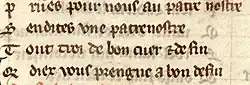 P riies pour nous au patir nostre
E endites vne patrenostre
T out troi de bon cuer & de fin
Q diex vous prengne a bon defin